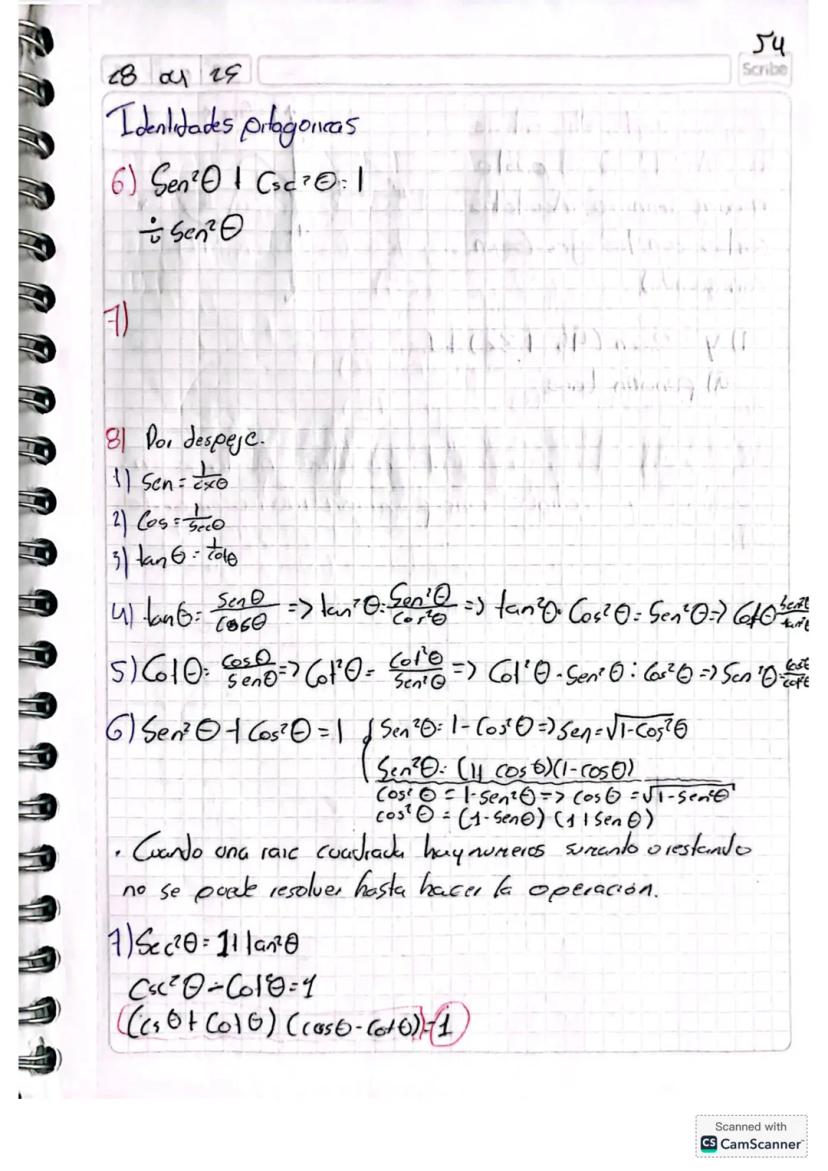 54
28 01 25
Scribe
Identidades pitagoricas
6) Sen²θ + Csc²θ = 1
÷ Sen²θ
7)
8) Por despeje.
1) Sen = 1/cscθ
2) Cos = 1/Secθ
3) tan θ = 1/cotθ
4) tanθ = Senθ/Cosθ => tan²θ = Sen²θ/Cos²θ => tan²θ · Cos²θ = Sen²θ => Cotθ
5) Cotθ = Cosθ/Senθ => Cot²θ = Cot²θ/Sen²θ => Cot²θ · Sen²θ = Cos²θ => Sen²θ
6) Sen²θ + Cos²θ = 1 { Sen²θ = 1 - Cos²θ => Sen = √1-Cos²θ
Sen²θ = (1+ cosθ)(1-cosθ)
cos²θ = 1-Sen²θ => cosθ = √1-Sen²θ
cos²θ = (1-Senθ) (1+Senθ)
· Cuando una raic cuadrada hay numeros sumanto o restando
no se puede resolver hasta hacer la operación.
7) Sec²θ = 1+tan²θ
Csc²θ - Cot²θ = 1
(Cs θ + Cotθ) (cosθ - Cotθ) = 1
Scanned with
CS CamScanner